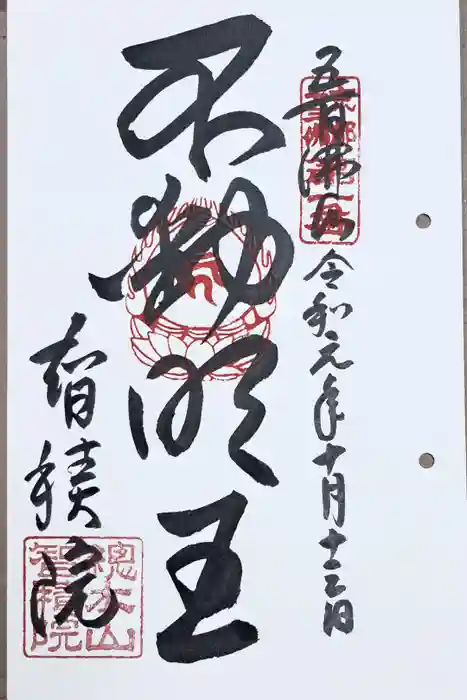 五百佛山
令和元年十月十三日
不動明王
智積院
總本山
智積院